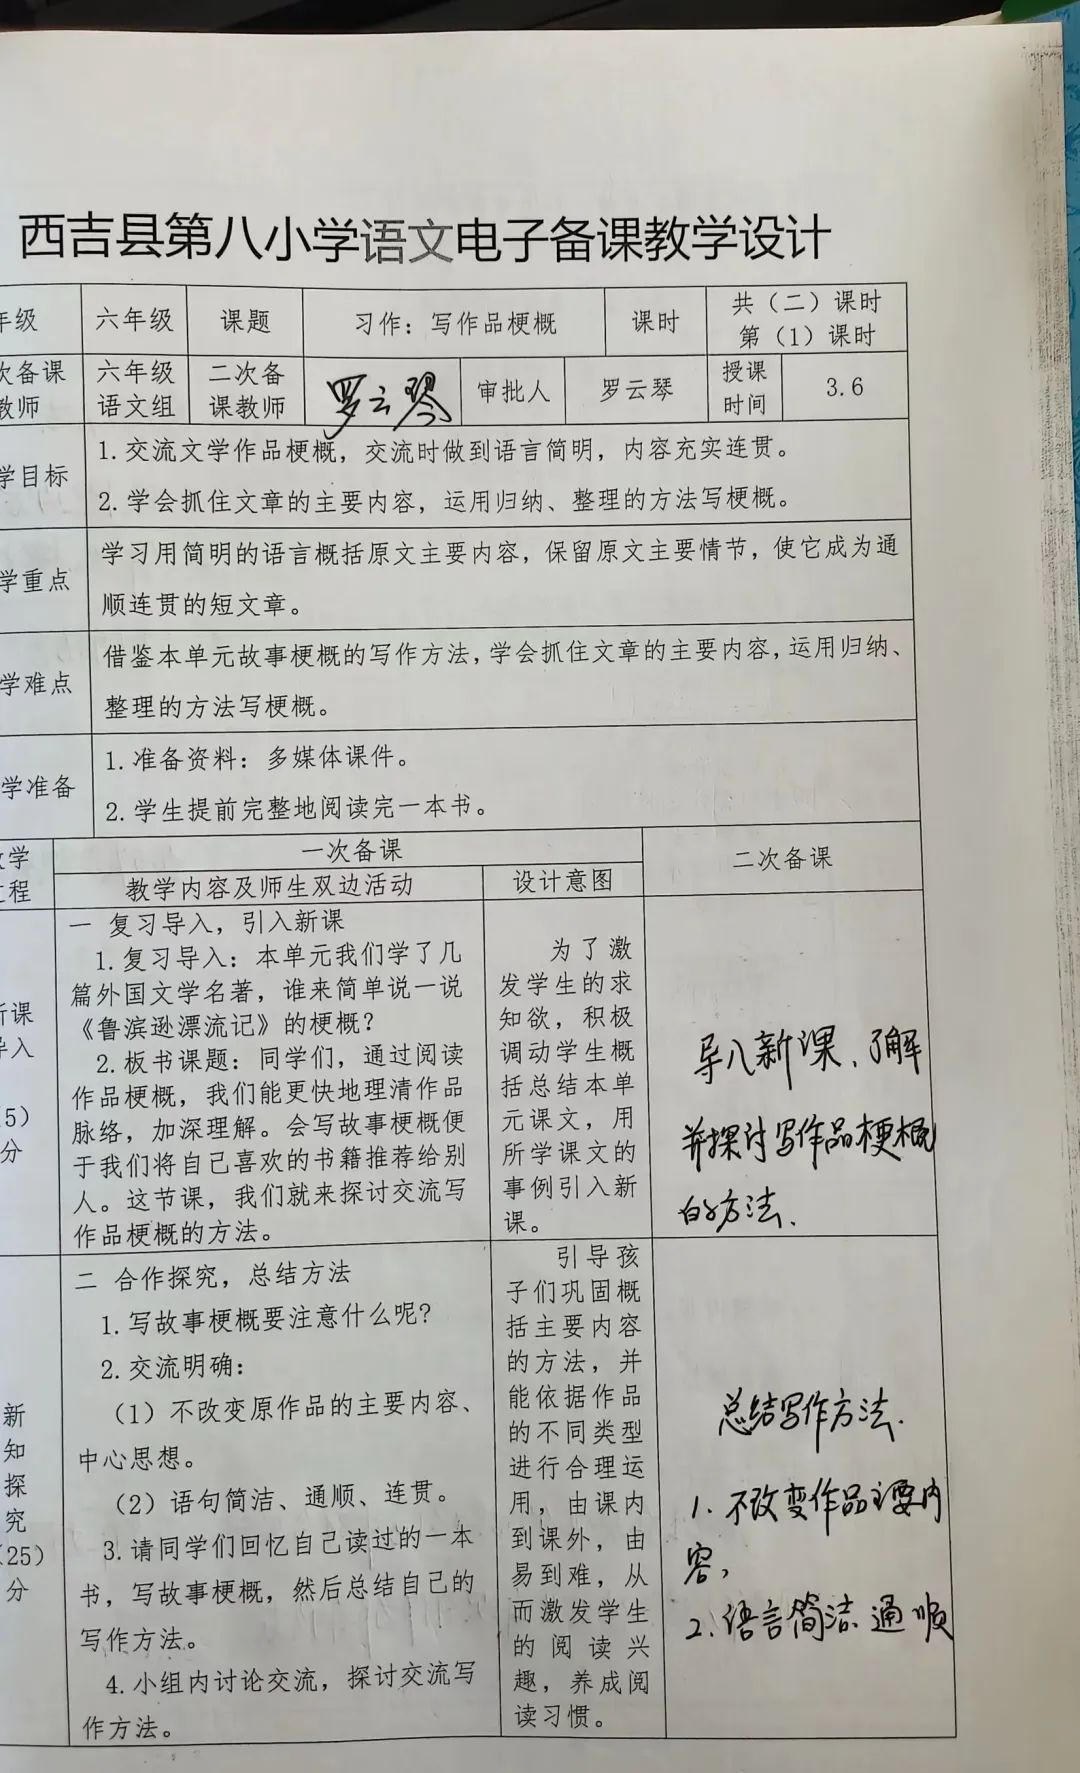 西吉县第八小学语文电子备课教学设计
年级 六年级 课题 习作：写作品梗概 课时 共（二）课时
第（1）课时
次备课
教师 六年级
语文组 二次备
课教师 罗云琴 审批人 罗云琴 授课
时间 3.6
学目标 1.交流文学作品梗概，交流时做到语言简明，内容充实连贯。
2.学会抓住文章的主要内容，运用归纳、整理的方法写梗概。
学重点 学习用简明的语言概括原文主要内容，保留原文主要情节，使它成为通
顺连贯的短文章。
学难点 借鉴本单元故事梗概的写作方法，学会抓住文章的主要内容，运用归纳、
整理的方法写梗概。
学准备 1.准备资料：多媒体课件。
2.学生提前完整地阅读完一本书。
教学
过程 一次备课 二次备课
教学内容及师生双边活动 设计意图
新课
导入
（5）
分
一 复习导入，引入新课
1.复习导入：本单元我们学了几
篇外国文学名著，谁来简单说一说
《鲁滨逊漂流记》的梗概？
2.板书课题：同学们，通过阅读
作品梗概，我们能更快地理清作品
脉络，加深理解。会写故事梗概便
于我们将自己喜欢的书籍推荐给别
人。这节课，我们就来探讨交流写
作品梗概的方法。
为了激
发学生的求
知欲，积极
调动学生概
括总结本单
元课文，用
所学课文的
事例引入新
课。
导入新课、了解
并探讨写作品梗概
的方法.
新
知
探
究
（25）
分
二 合作探究，总结方法
1.写故事梗概要注意什么呢？
2.交流明确：
（1）不改变原作品的主要内容、
中心思想。
（2）语句简洁、通顺、连贯。
3.请同学们回忆自己读过的一本
书，写故事梗概，然后总结自己的
写作方法。
4.小组内讨论交流，探讨交流写
作方法。
引导孩
子们巩固概
括主要内容
的方法，并
能依据作品
的不同类型
进行合理运
用，由课内
到课外，由
易到难，从
而激发学生
的阅读兴
趣，养成阅
读习惯。
总结写作方法.
1.不改变作品主要内
容,
2.语言简洁 通顺